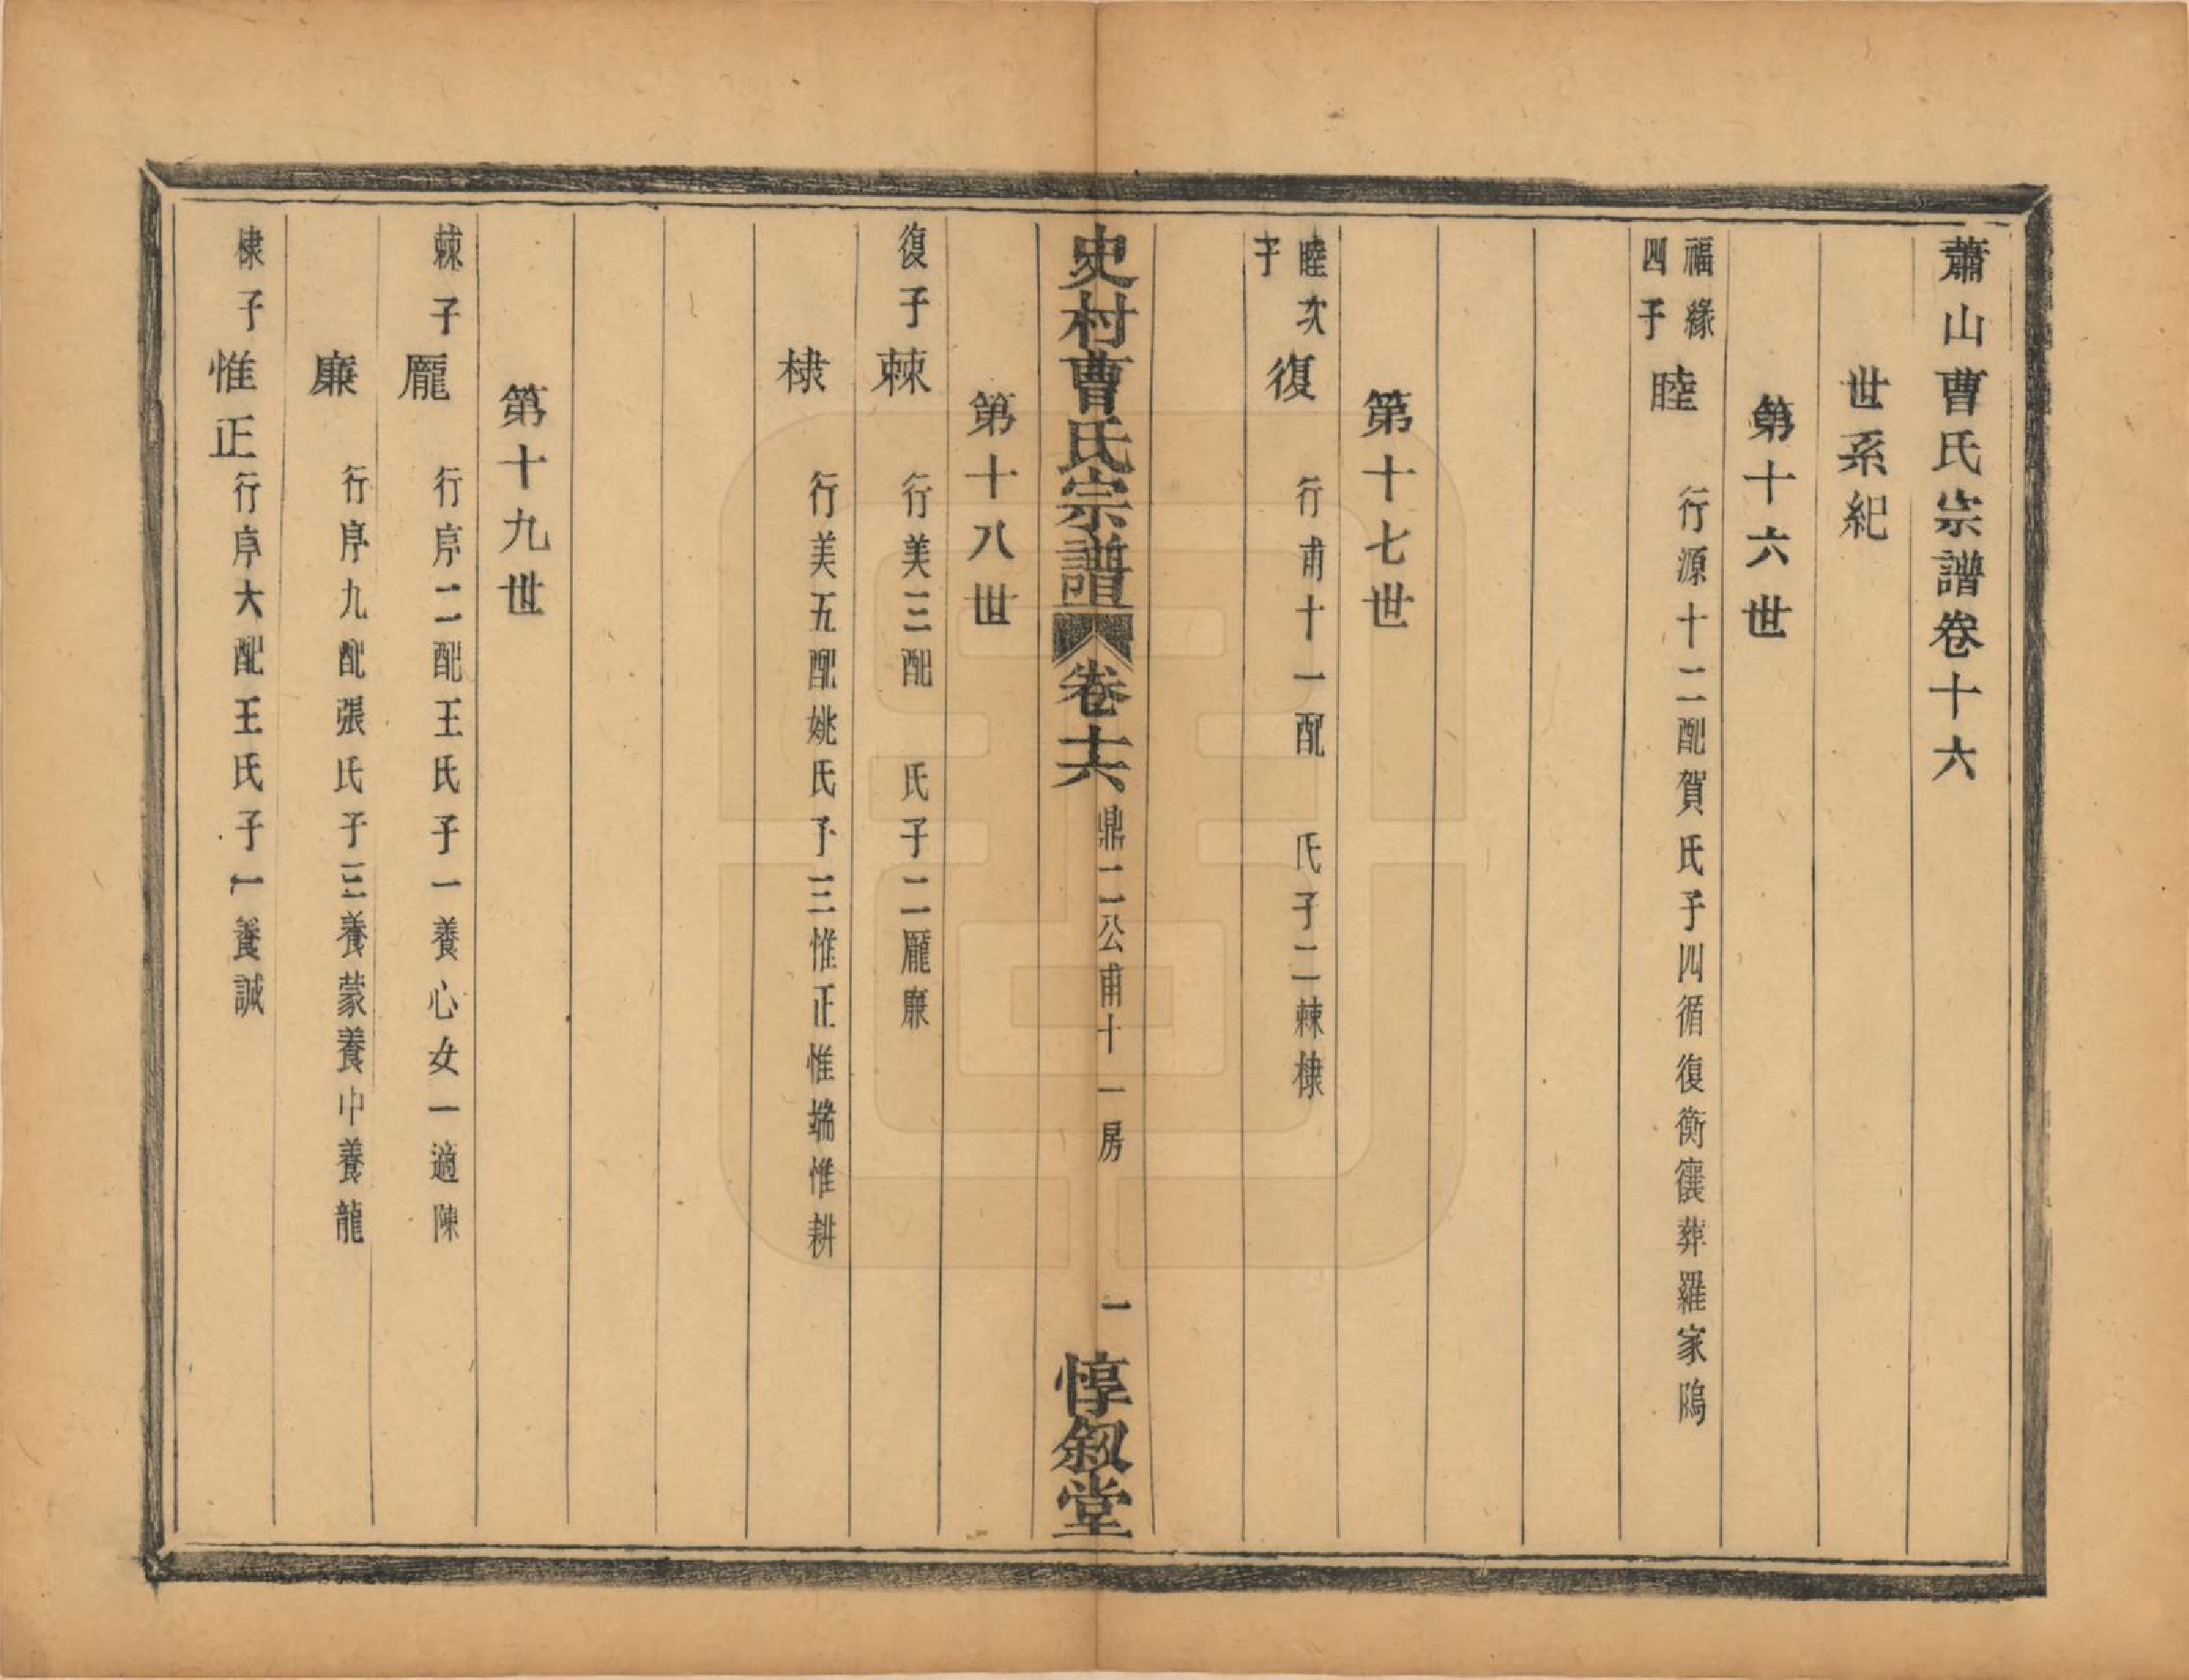 蕭山曹氏宗譜卷十六
世系紀
第十六世
福緣四子 睦 行源十二配賀氏子四循復衡儀葬羅家隖
第十七世
睦次子 復 行甫十一配 氏子二棘棣
史村曹氏宗譜 卷十六 鼎二公甫十一房 一 惇敘堂
第十八世
復子 棘 行美三配 氏子二龐廉
棣 行美五配姚氏子三惟正惟端惟耕
第十九世
棘子 龐 行序二配王氏子一養心女一適陳
廉 行序九配張氏子三養蒙養中養龍
棣子 惟正 行序大配王氏子一養誠